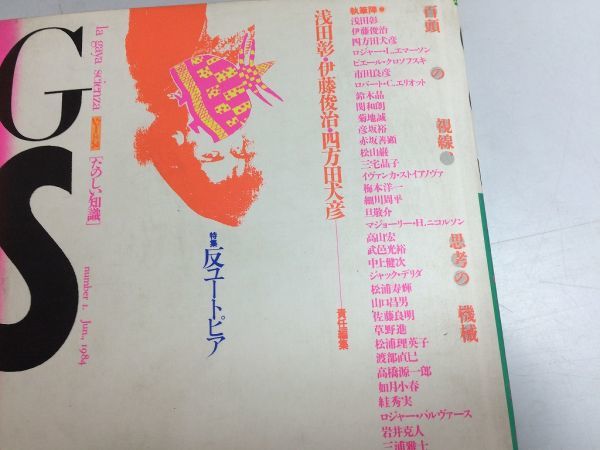 GS
la gaya scienza
[たのしい知識]
number 1. Jun., 1984
特集
反ユートピア
浅田彰・伊藤俊治・四方田犬彦
責任編集
執筆陣
浅田彰
伊藤俊治
四方田犬彦
ロジャー・L.エマーソン
ピエール・クロソフスキ
市田良彦
ロバート・C.エリオット
鈴木晶
関和朗
菊地誠
彦坂裕
赤坂善顕
松山巌
三宅晶子
イヴァンカ・ストイアノヴァ
梅本洋一
細川周平
旦敬介
マジョーリー・H.ニコルソン
高山宏
武邑光裕
中上健次
ジャック・デリダ
松浦寿輝
山口昌男
佐藤良明
草野進
松浦理英子
渡部直巳
高橋源一郎
如月小春
絓秀実
ロジャー・パルヴァース
岩井克人
三浦雅士
百頭の視線
思考の機械